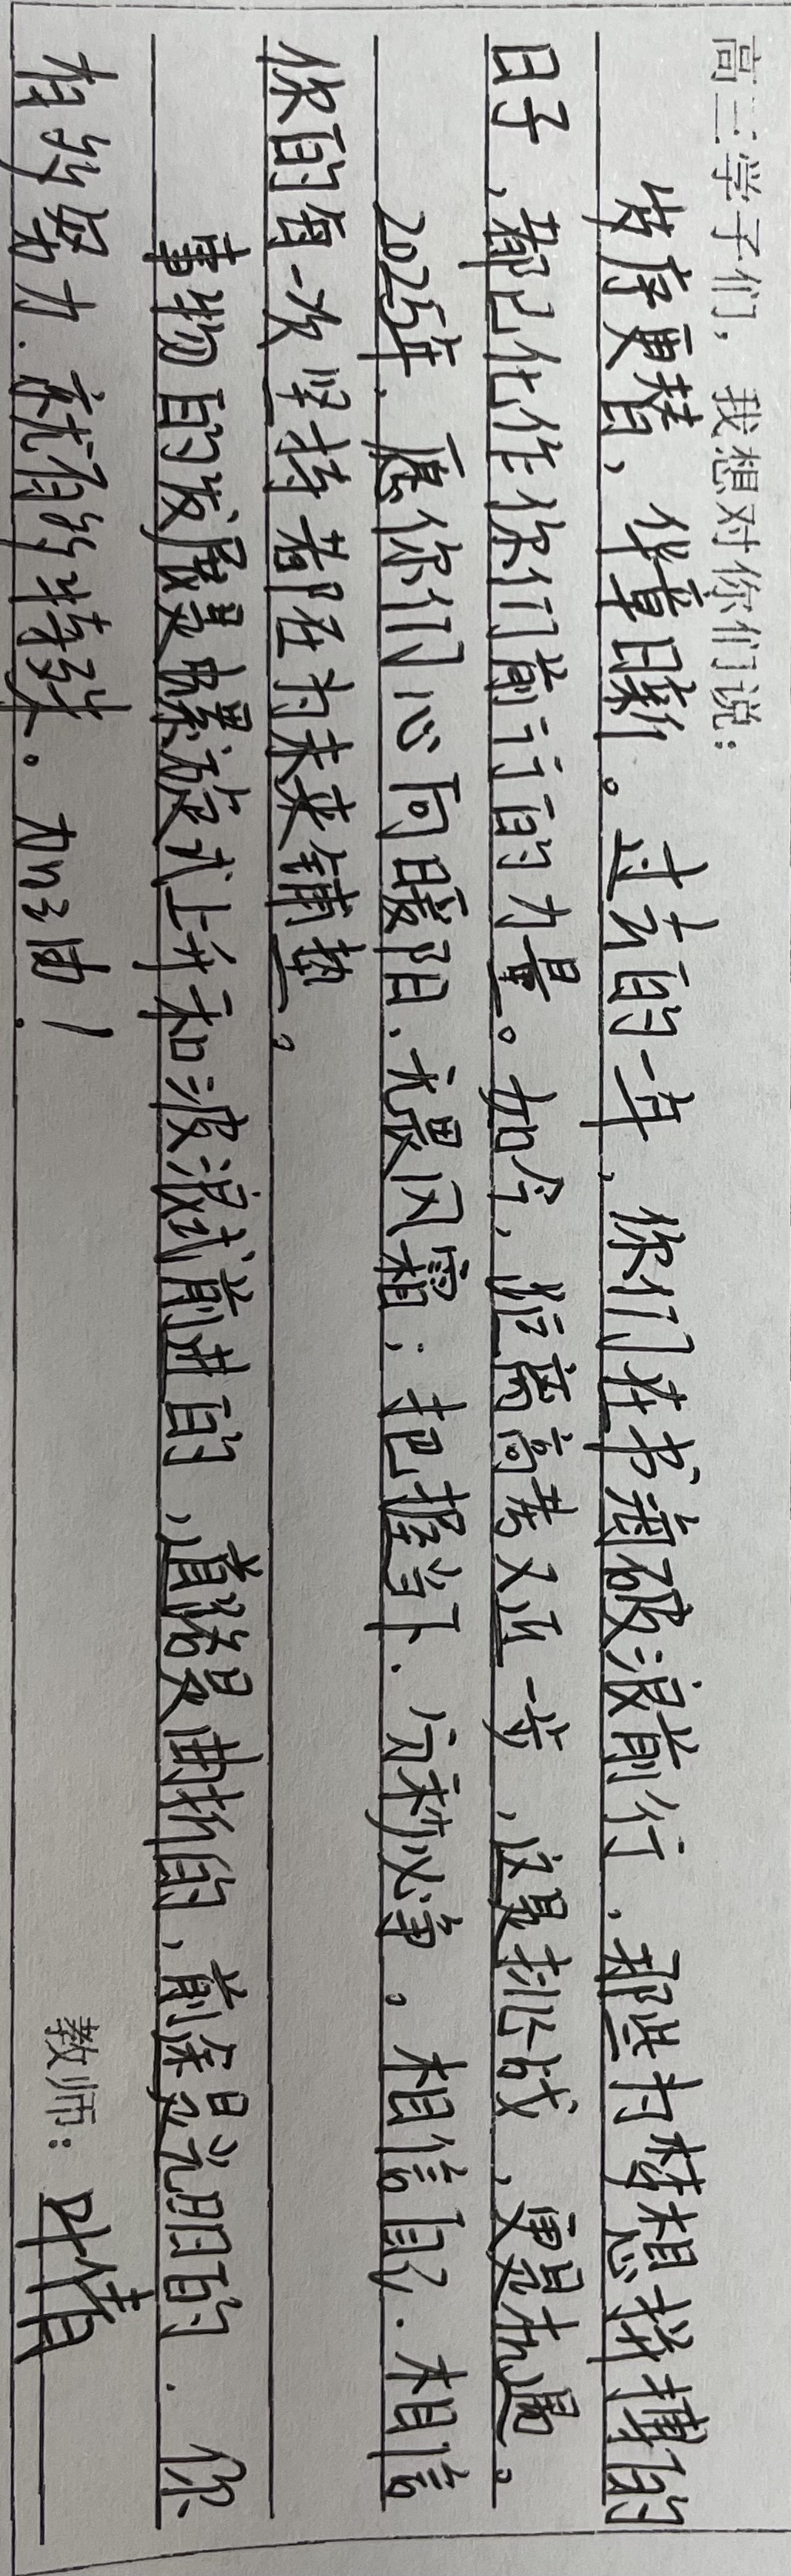 高三学子们，我想对你们说：
岁序更替，华章日新。过去的一年，你们在书海破浪前行，那些为梦想拼搏的
日子，都已化作你们前行的力量。如今，距离高考又近一步，这是挑战，更是机遇。
2025年，愿你们心向暖阳、无畏风霜；把握当下、分秒必争。相信自己、相信
你的每一次坚持都在为未来铺垫。
事物的发展是螺旋式上升和波浪式前进的，道路是曲折的，前途是光明的. 你
有的努力. 就有的特殊。加油！
教师：叶倩